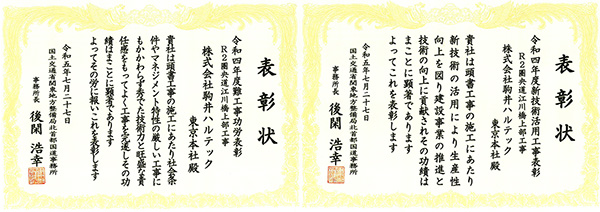 表彰状
令和四年度難工事功労表彰
R2圏央道江川橋上部工事
株式会社駒井ハルテック
東京本社殿
貴社は頭書工事の施工にあたり社会条
件やマネジメント特性の厳しい工事に
もかかわらず秀でた技術力と旺盛な責
任感をもってよく工事を完遂しその功
績はまことに顕著であります
よってその労に報いこれを表彰します
令和五年七月二十七日
国土交通省関東地方整備局北首都国道事務所
事務所長 後閑浩幸
表彰状
令和四年度新技術活用工事表彰
R2圏央道江川橋上部工事
株式会社駒井ハルテック
東京本社殿
貴社は頭書工事の施工にあたり
新技術の活用により生産性
向上を図り建設事業の推進と
技術の向上に貢献されその功績は
まことに顕著であります
よってこれを表彰します
令和五年七月二十七日
国土交通省関東地方整備局北首都国道事務所
事務所長 後閑浩幸